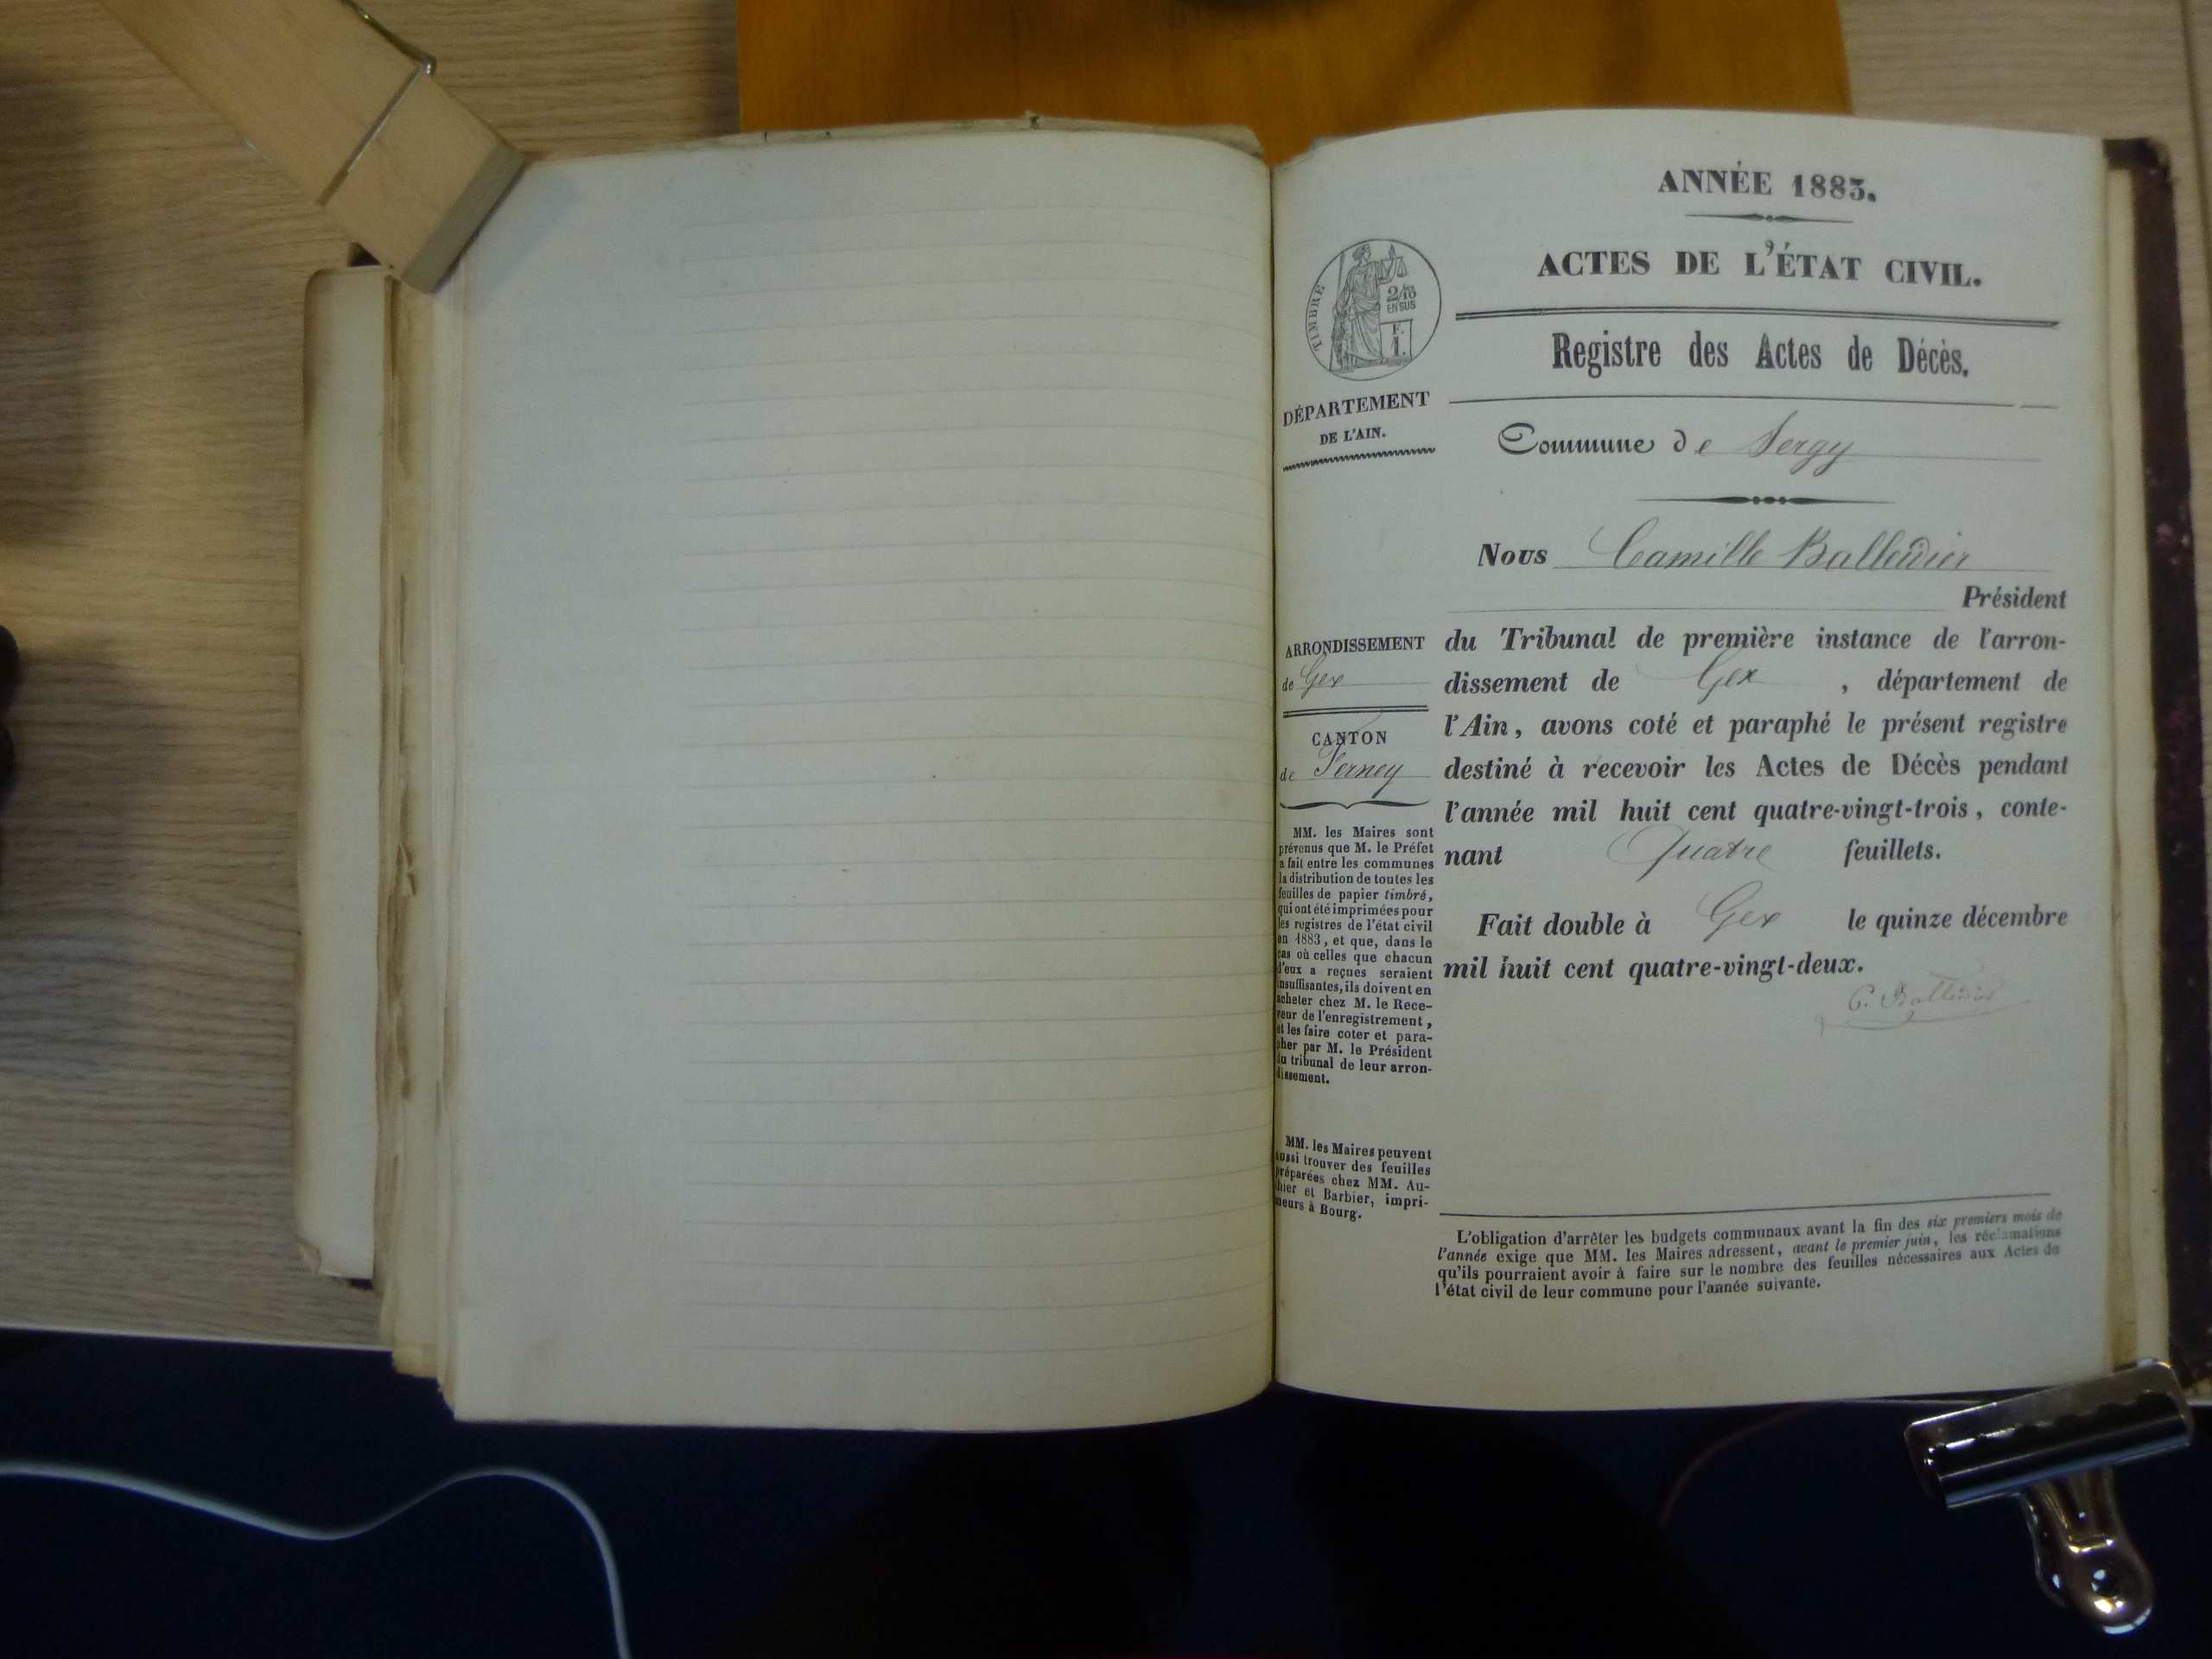 ANNÉE 1883.
ACTES DE L'ÉTAT CIVIL.
Registre des Actes de Décès.
TIMBRE
2/10
EN SUS
F.
1.
DÉPARTEMENT
DE L'AIN.
Commune de Sergy
Nous Camille Balleidier
Président
du Tribunal de première instance de l'arron-
dissement de Gex, département de
l'Ain, avons coté et paraphé le présent registre
destiné à recevoir les Actes de Décès pendant
l'année mil huit cent quatre-vingt-trois, conte-
nant Quatre feuillets.
Fait double à Gex le quinze décembre
mil huit cent quatre-vingt-deux.
C. Balleidier
ARRONDISSEMENT
de Gex
CANTON
de Ferney
MM. les Maires sont
prévenus que M. le Préfet
a fait entre les communes
la distribution de toutes les
feuilles de papier timbré,
qui ont été imprimées pour
les registres de l'état civil
en 1883, et que, dans le
cas où celles que chacun
d'eux a reçues seraient
insuffisantes, ils doivent en
acheter chez M. le Rece-
veur de l'enregistrement,
et les faire coter et para-
pher par M. le Président
du tribunal de leur arron-
dissement.
MM. les Maires peuvent
aussi trouver des feuilles
préparées chez MM. Au-
thier et Barbier, impri-
meurs à Bourg.
L'obligation d'arrêter les budgets communaux avant la fin des six premiers mois de
l'année exige que MM. les Maires adressent, avant le premier juin, les réclamations
qu'ils pourraient avoir à faire sur le nombre des feuilles nécessaires aux Actes de
l'état civil de leur commune pour l'année suivante.